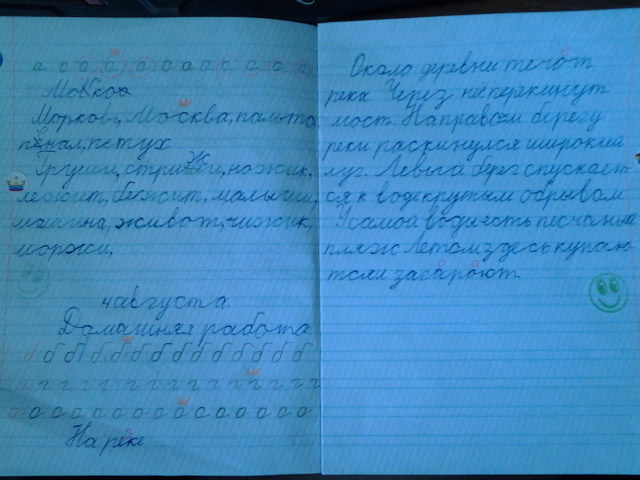 а а а а а а а а а а а а
Морковь, Москва, пальто,
пенал, петух
Груши, стрижи, ножик,
лежит, бежит, малыши,
машина, живот, чижик,
моржи.
чавгуста
Домашняя работа
б б б б б б б б б б б б б
г г г г г г г г г г г г г г
а а а а а а а а а а а а а
На реке
Около деревни течот
река. Через неё перекинут
мост. На правом берегу
реки раскинулся широкий
луг. Левый берег спускает-
ся к воде крутым обрывом
У самой воды есть песчаный
пляж Летом здесь купаю-
тся и загароют.